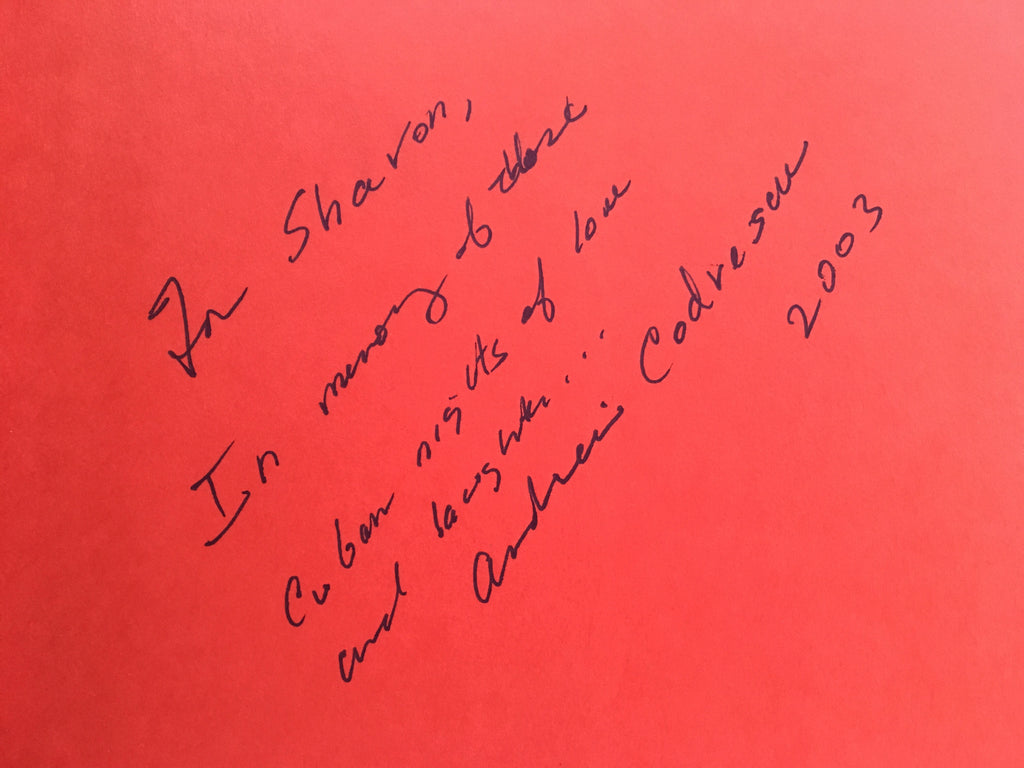 For Sharon,
In memory of those
Cuban nights of love
and laughter...
Andrei Codrescu
2003